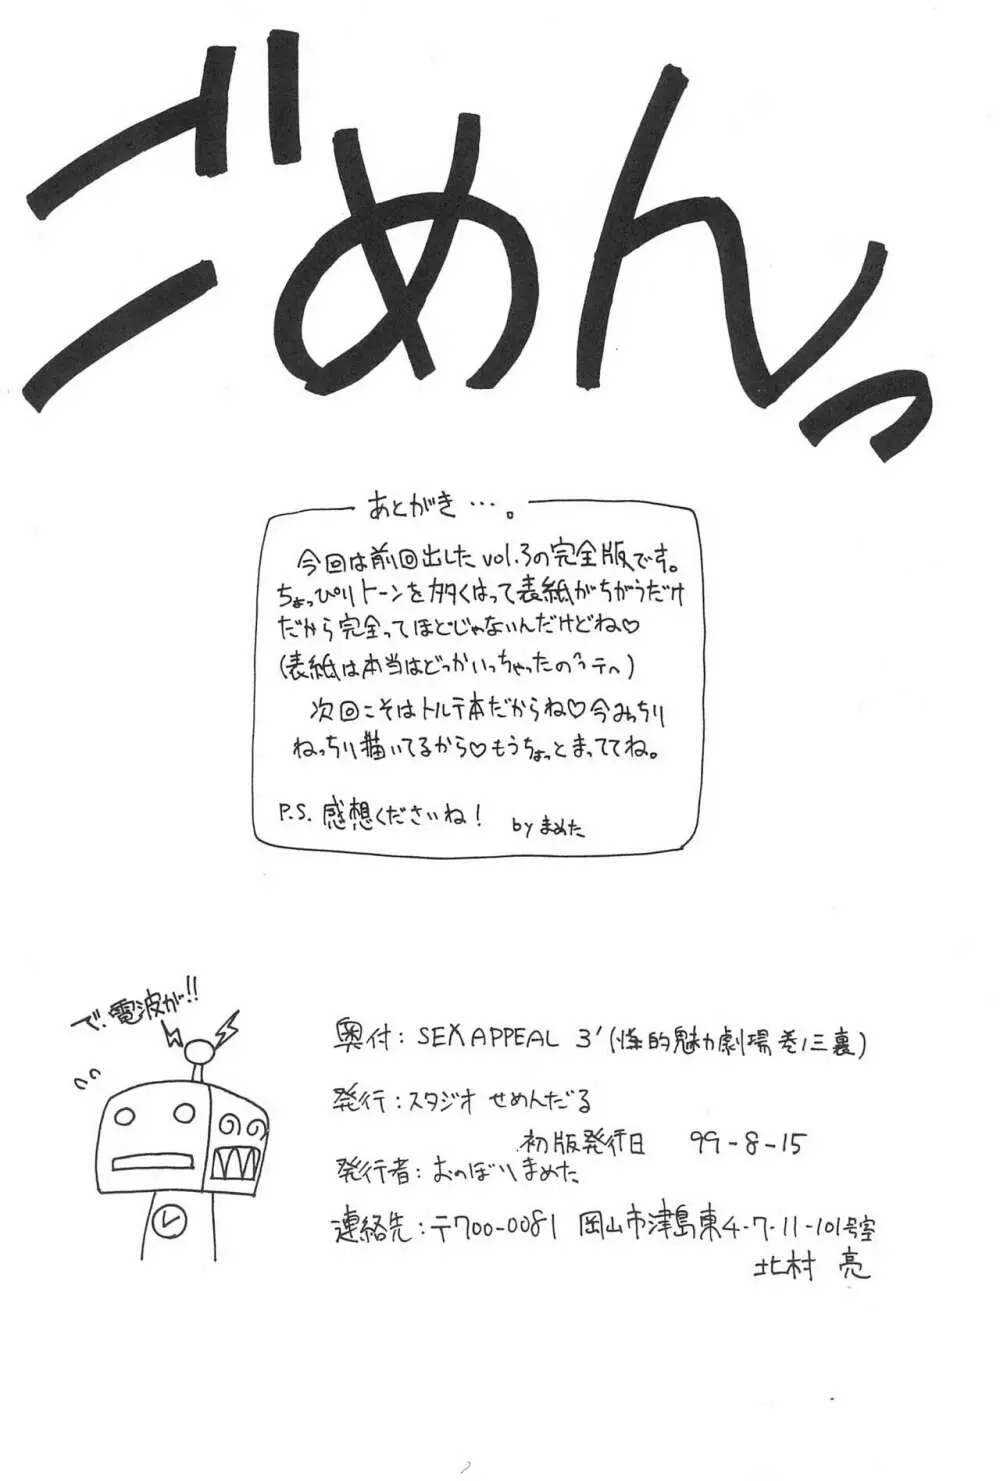 ごめんっ
あとがき…。
今回は前回出したvol.3の完全版です。
ちょっぴりトーンを多くはって表紙がちがうだけ
だから完全ってほどじゃないんだけどね♡
(表紙は本当はどっかいっちゃったの
次回こそはトルテ本だからね♡今みっちり
ねっちり描いてるから♡もうちょっとまっててね。
P.S. 感想くださいね! by まめた
で、電波が!!
奥付:SEX APPEAL 3'(性的魅力劇場 巻ノ三裏)
発行:スタジオ せめんだる
初版発行日 99-8-15
発行者:おのぼりまめた
連絡先:〒700-0081 岡山市津島東4-7-11-101号室
北村 亮